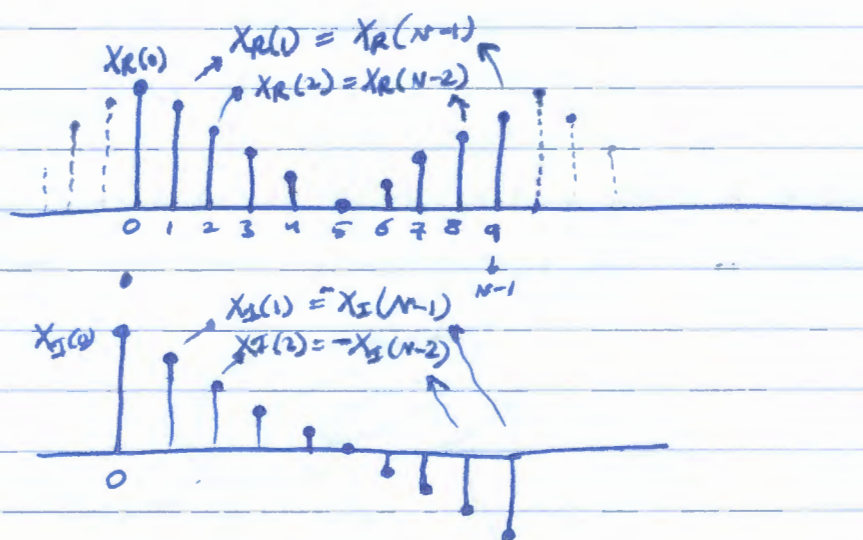 X_R(0)
X_R(1) = X_R(N-1)
X_R(2) = X_R(N-2)
0 1 2 3 4 5 6 7 8 9
N-1
X_I(0)
X_I(1) = -X_I(N-1)
X_I(2) = -X_I(N-2)
0